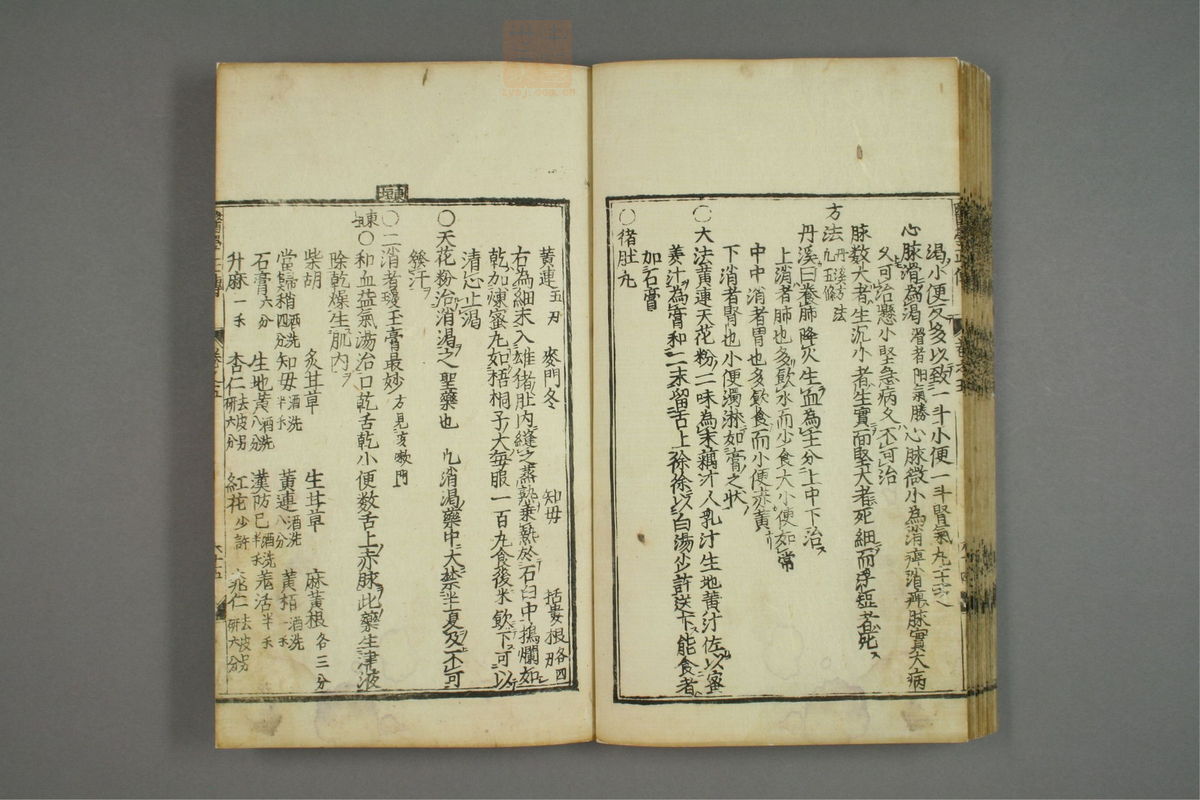 渴小便反多以致一斗小便一斗腎氣丸主之
心脉滑為渴滑者陽氣勝心脉微小為消癉消癉脉實大病
久可治懸小堅急病久不可治
脉数大者生沉小者生實而堅大者死細而浮短者死
方法丹溪方法
凡五條
丹溪曰養肺降火生血為主分上中下治
上消者肺也多飲水而少食大小便如常
中中消者胃也多飲食而小便赤黄
下消者腎也小便濁淋如膏之狀
〇大法黄連天花粉二味為末藕汁人乳汁生地黄汁佐以蜜
姜汁為膏和二末留舌上徐徐以白湯少許送下能食者
加石膏
〇猪肚丸
黄連五刃 麥門冬 知母 括蔞根各四刃
右為細末入雄猪肚内縫之蒸熟乗熱於石臼中搗爛如
乾加煉蜜丸如梧桐子大每服一百丸食後米飲下可以
清心止渴
〇天花粉治消渴之聖藥也 凡消渴藥中大禁半夏及不可
發汗
〇三消者瓊玉膏最妙方見咳嗽門
東垣
〇和血益氣湯治口乾舌乾小便数舌上赤脉此藥生津液
除乾燥生肌肉
柴胡 炙甘草 生甘草 麻黄根各三分
當歸稍酒洗四分 知母酒洗半禾 黄連酒洗八分 黄栢酒洗一禾
石膏六分 生地黄酒洗八分 漢防已酒洗半禾 羌活半禾
升麻一禾 杏仁去皮尖研六分 紅花少許 桃仁去皮尖研六分
醫學正傳 卷之五 六十五